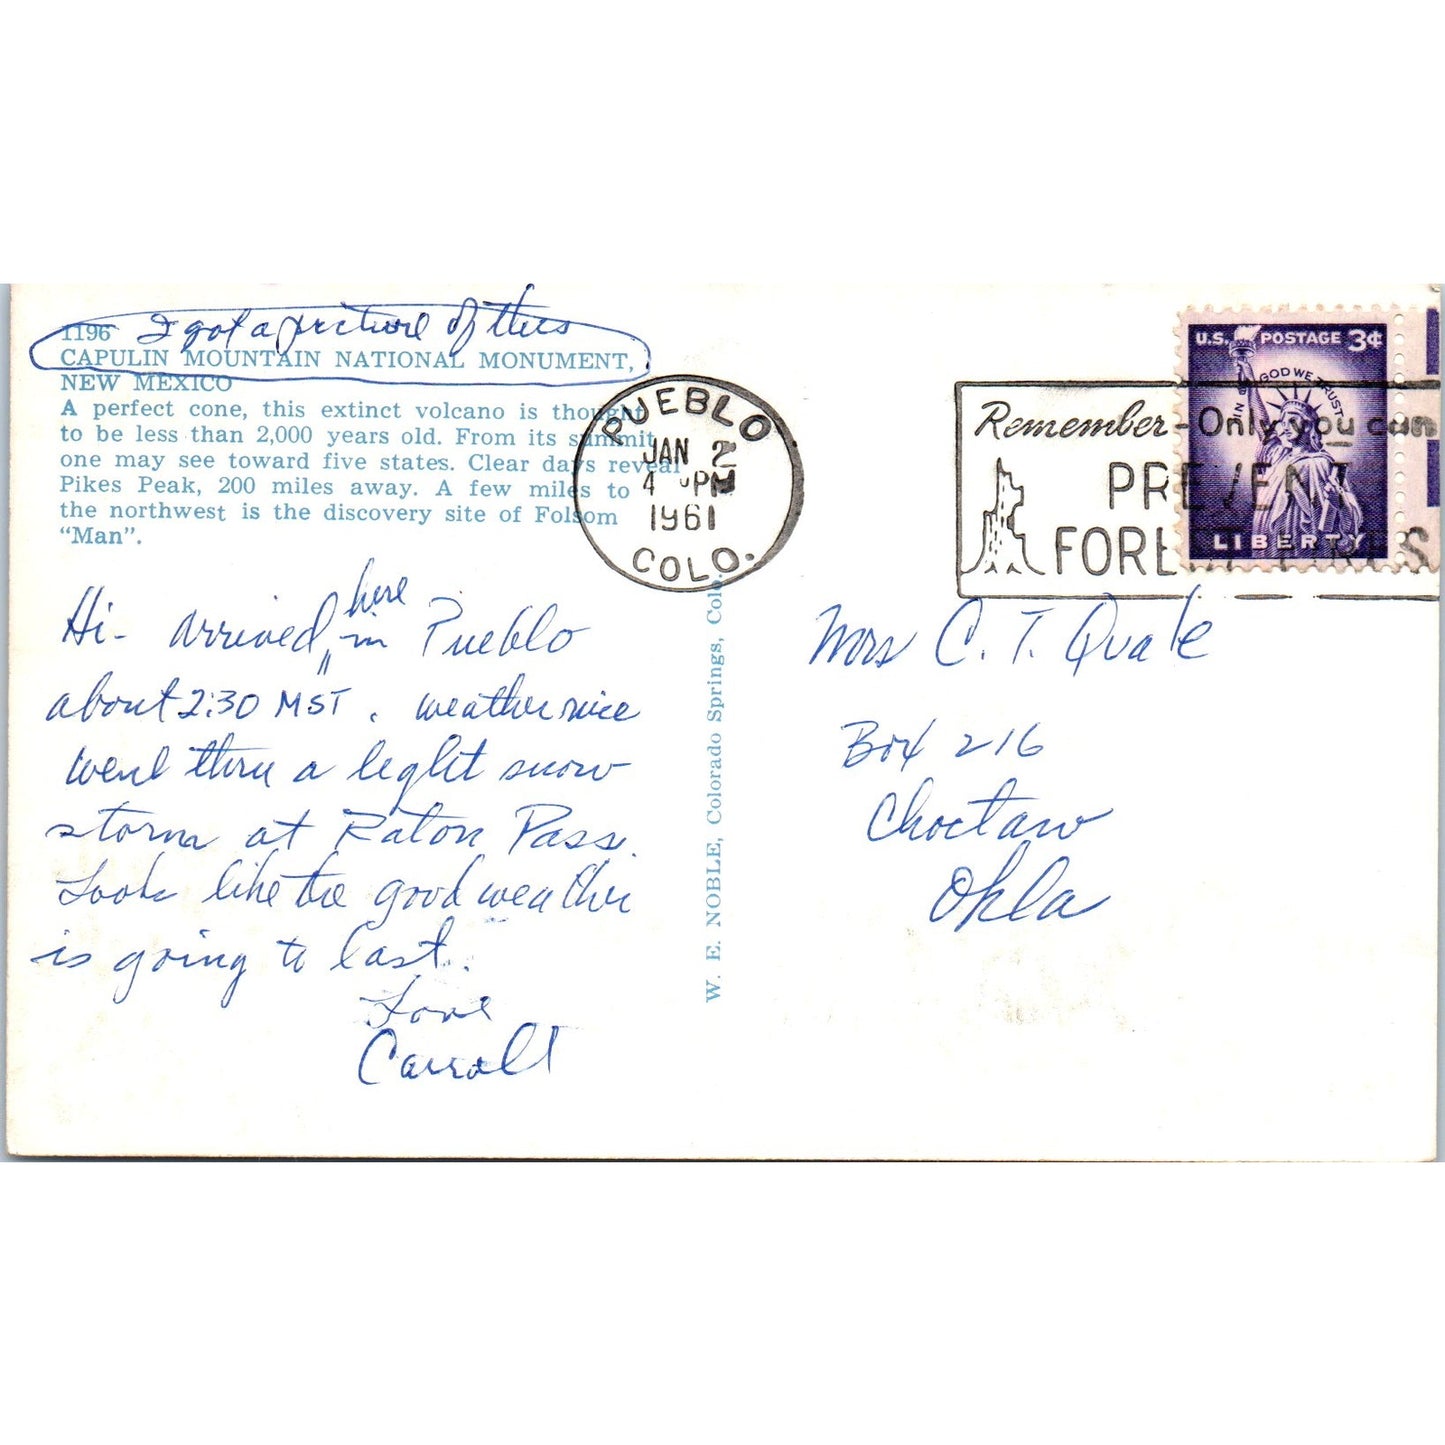 1196 I got a picture of this
CAPULIN MOUNTAIN NATIONAL MONUMENT,
NEW MEXICO
A perfect cone, this extinct volcano is thought
to be less than 2,000 years old. From its summit
one may see toward five states. Clear days reveal
Pikes Peak, 200 miles away. A few miles to
the northwest is the discovery site of Folsom
“Man”.
Hi- arrived here in Pueblo
about 2:30 MST. weather nice
went thru a light snow
storm at Raton Pass.
Look like the good weather
is going to last.
Love
Carroll
W. E. NOBLE, Colorado Springs, Colo.
PUEBLO
JAN 2
4 PM
1961
COLO.
Remember-Only you can
PREVENT
FOREST FIRES
U.S. POSTAGE 3¢
IN GOD WE TRUST
LIBERTY
Mrs C. T. Quale
Box 216
Choctaw
Okla